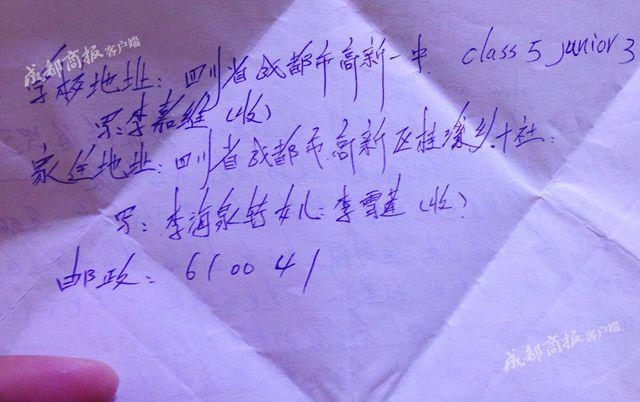 成都商报客户端
学校地址：四川省成都市高新一中 class 5 junior 3
写：李嘉维（收）
家住地址：四川省成都市高新区桂溪乡十社.
写：李海泉转女儿：李雪莲（收）
邮政：610041
成都商报客户端